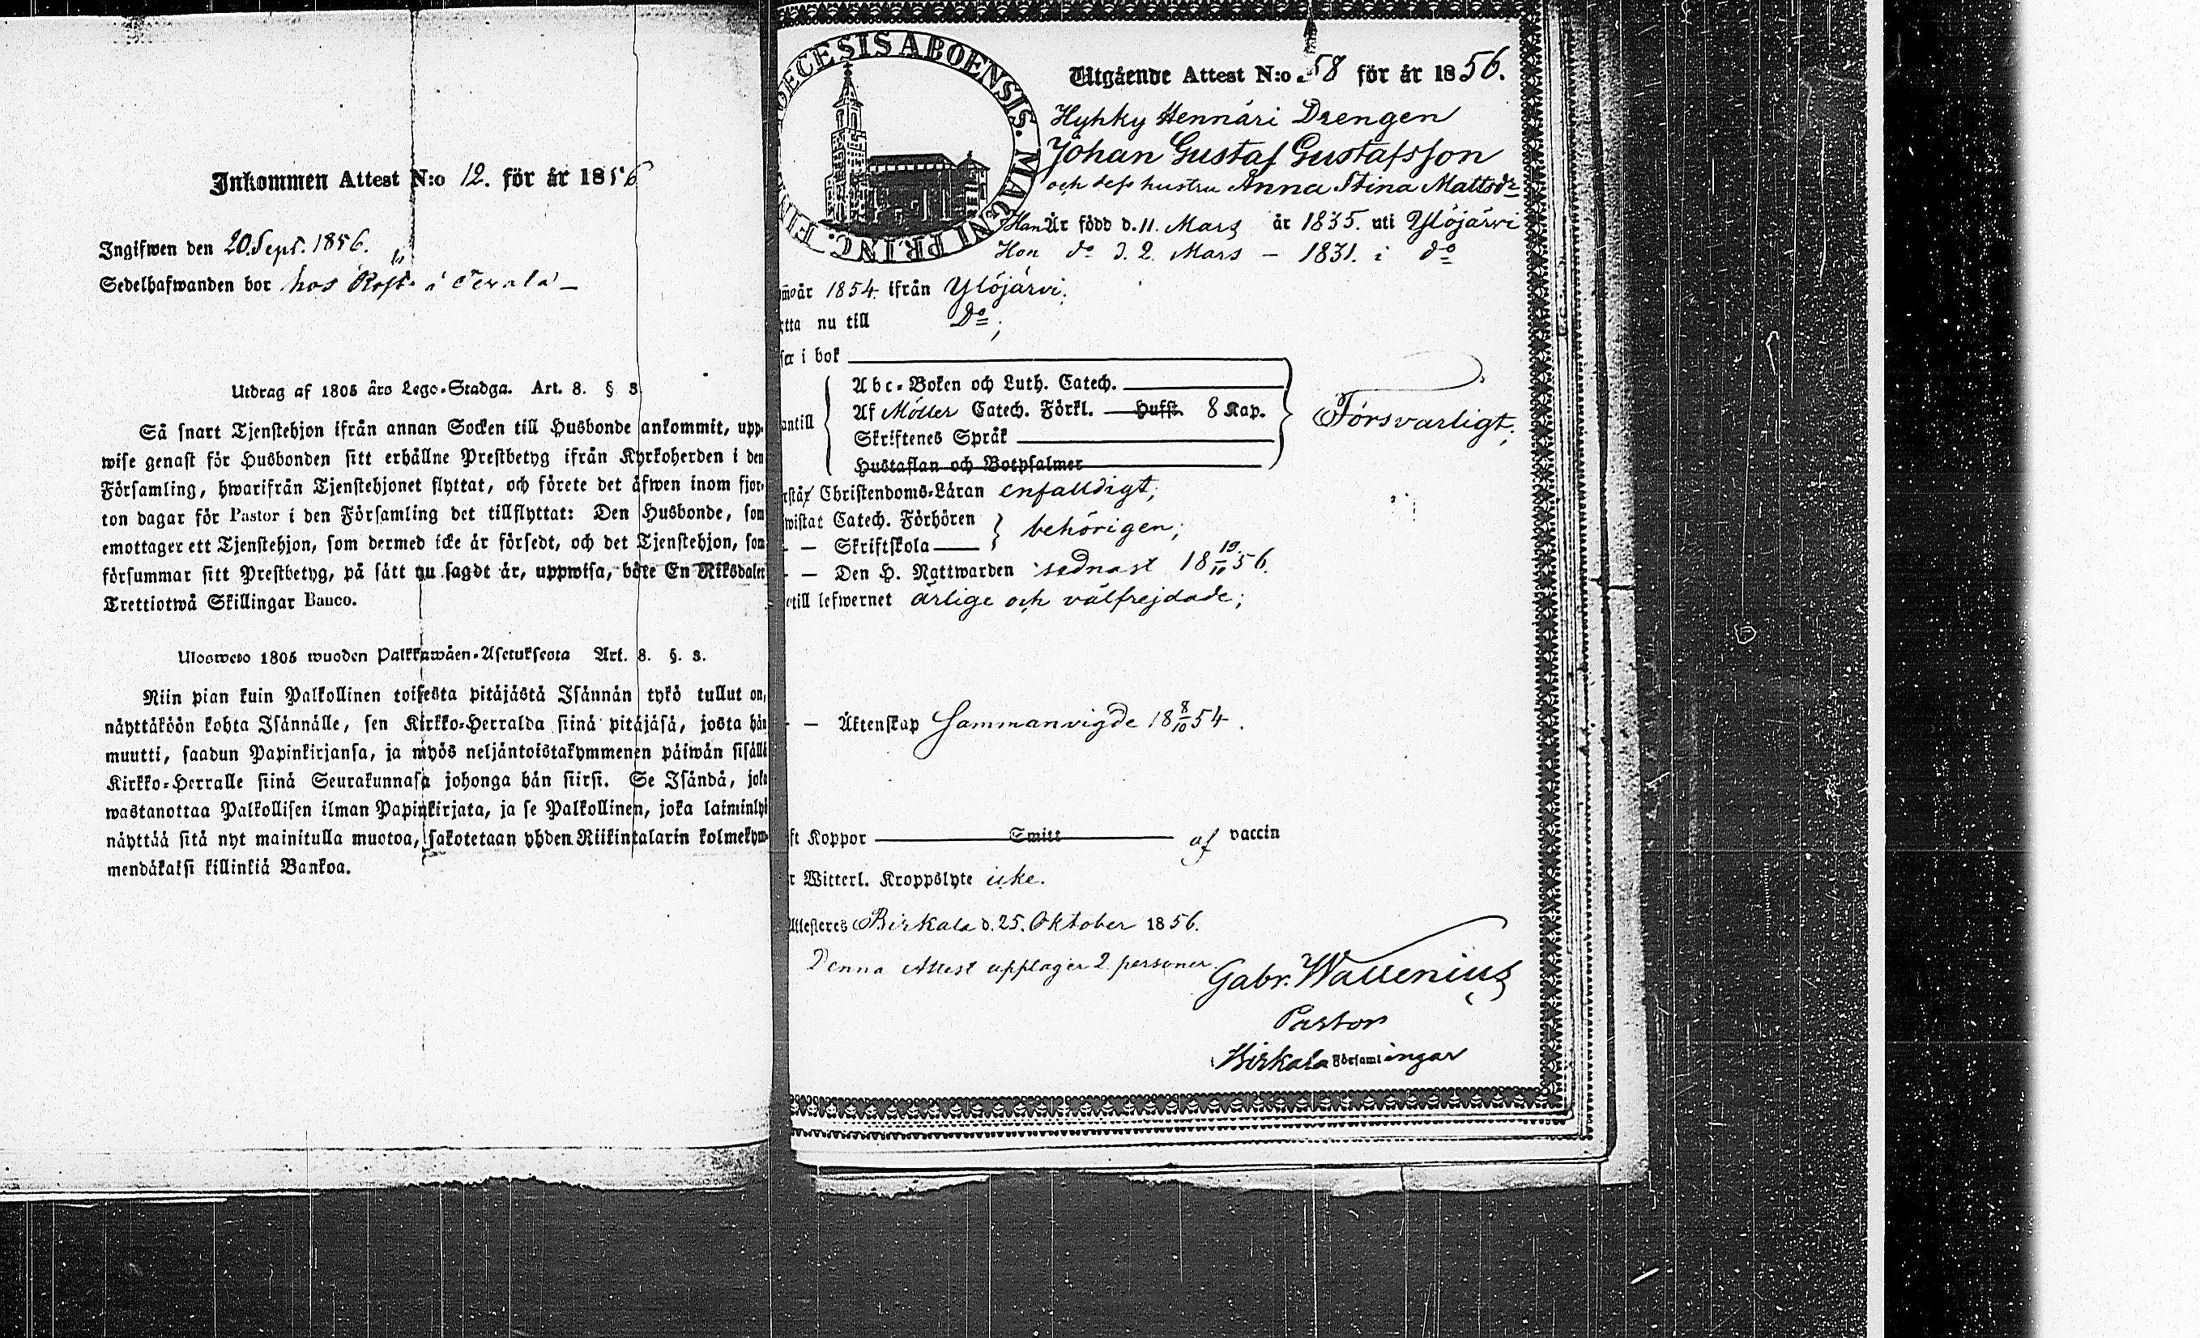 Inkommen Attest N:o 12. för år 1856
Ingifwen den 20. Sept. 1856.
Sedelhafwanden bor hos
Utdrag af 1805 års Lego-Stadga. Art. 8. § 3.
Så snart Tjenstehjon ifrån annan Socken till Husbonde ankommit, upp-
wise genast för Husbonden sitt erhållne Prestbetyg ifrån Kyrkoherden i den
Församling, hwarifrån Tjenstehjonet flyttat, och förete det äfwen inom fjor-
ton dagar för Pastor i den Församling det tillflyttat: Den Husbonde, som
emottager ett Tjenstehjon, som dermed icke är försedt, och det Tjenstehjon, som
försummar sitt Prestbetyg, på sätt nu sagdt är, uppwisa, böte En Riksdaler
Trettiotwå Skillingar Banco.
Ulosweto 1805 wuoden Palkkawäen-Asetuksesta Art. 8. §. 3.
Niin pian kuin Palkollinen toisesta pitäjästä Isännän tykö tullut on,
näyttäköön kohta Isännälle, sen Kirkko-Herralda siinä pitäjäsä, josta hän
muutti, saadun Papinkirjansa, ja myös neljäntoistakymmenen päiwän sisällä
Kirkko-Herralle siinä Seurakunnasa johonga hän siirsi. Se Isändä, joka
wastanottaa Palkollisen ilman Papinkirjata, ja se Palkollinen, joka laiminlyö
näyttää sitä nyt mainitulla muotoa, sakotetaan yhden Riikintalarin kolmekym-
mendäkaksi killinkiä Bankoa.
DIECESIS ABOENSIS. MAGNI PRINC. FIN
Utgående Attest N:o 58 för år 1856.
Hyhky Hennäri Drengen
Johan Gustaf Gustafsson
och dess hustru Anna Stina Mattsdr
Han Är född d. 11. Mars år 1835. uti Ylöjärvi
Hon do d. 2. Mars – 1831. i do
år 1854. ifrån Ylöjärvi.
tta nu till Do;
ser i bok
Abc-Boken och Luth. Catech.
antill Af Möller Catech. Förkl. Hufst. 8 Kap. Försvarligt;
Skriftenes Språk
Hustaflan och Botpsalmer
rstår Christendoms-Läran enfaldigt;
wistat Catech. Förhören
– – Skriftskola behörigen;
– – Den H. Nattwarden sednast 18 19/10 56.
till lefwernet ärlige och välfrejdade;
– – Äktenskap Sammanvigde 18 8/10 54.
ft Koppor Smitt af vaccin
r Witterl. Kroppslyte icke.
Attesteres Birkala d. 25. Oktober 1856.
Denna Attest upptager 2 personer.
Gabr. Wallenius
Pastor
Birkala Församlingar